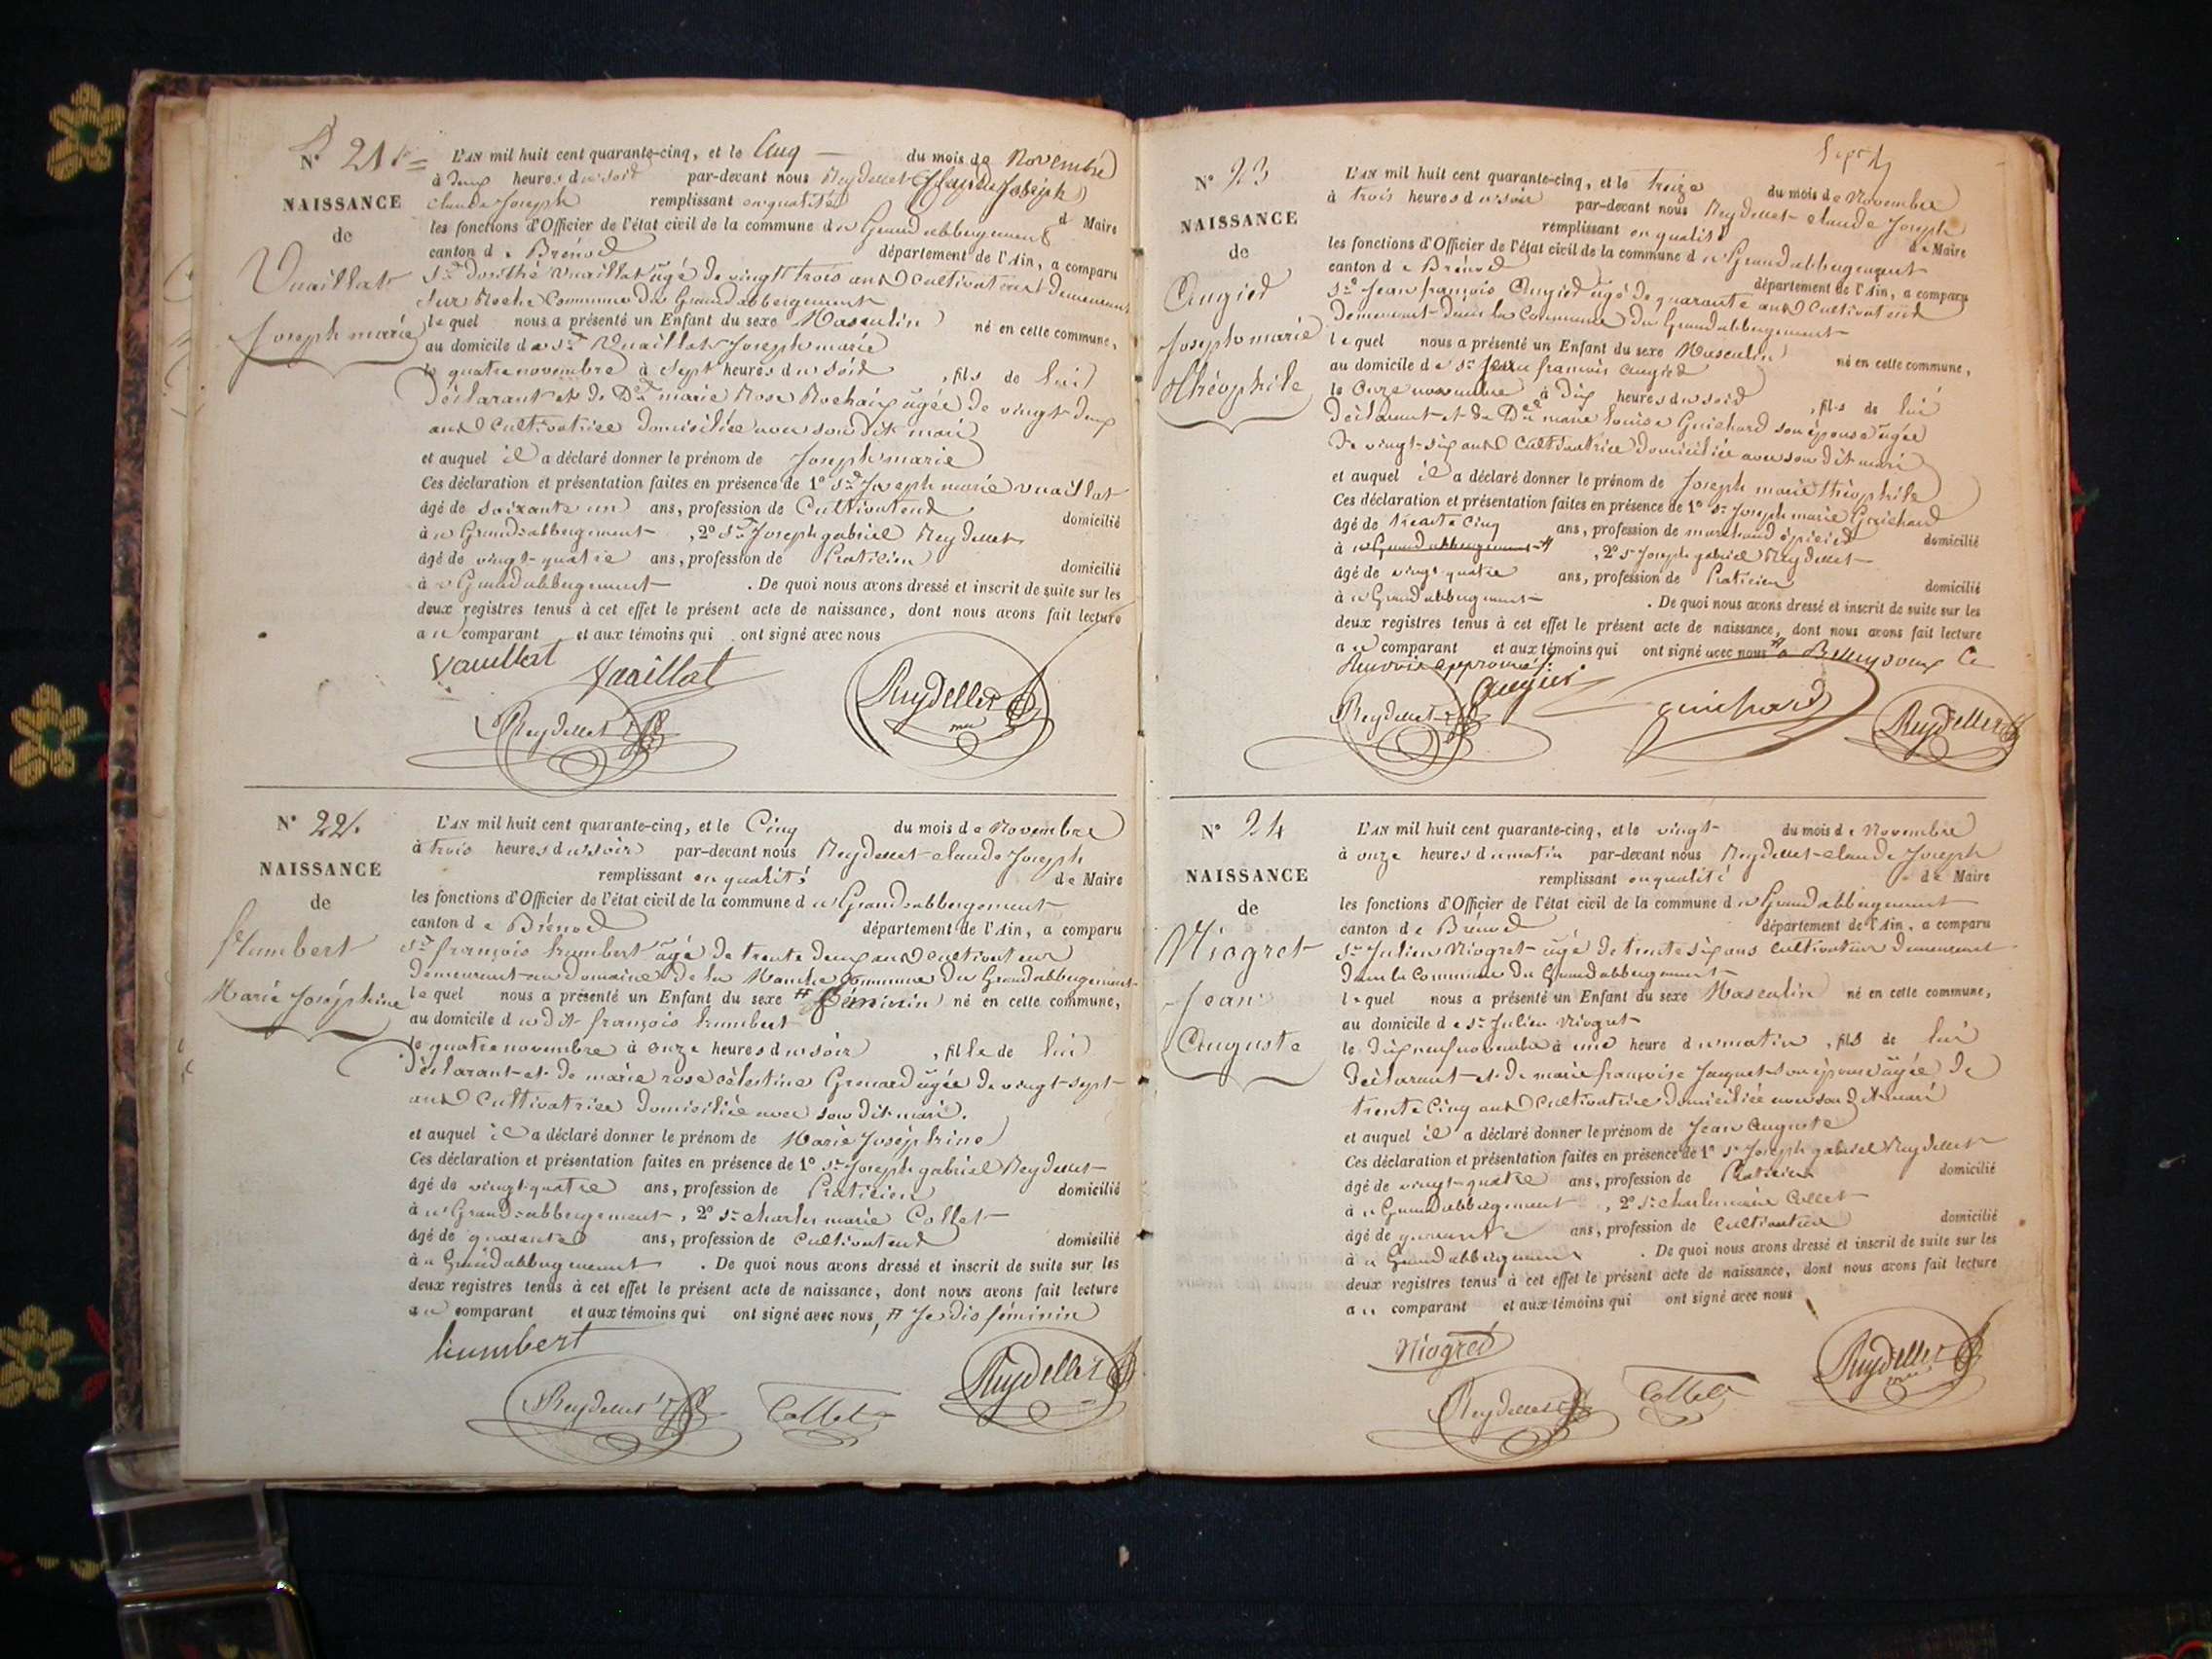 N° 21
NAISSANCE
de
Vuaillat
Joseph marie
L'AN mil huit cent quarante-cinq, et le Cinq du mois de Novembre
à deux heures du soir par-devant nous Reydellet Claude Joseph
Claude Joseph remplissant en qualité
d Maire
les fonctions d'Officier de l'état civil de la commune du Grand abbergement
canton de Brénod département de l'Ain, a comparu
Sr Vuaillat âgé de vingt trois ans Cultivateur demeurant
Sur Roche Commune du Grand abbergement
lequel nous a présenté un Enfant du sexe Masculin né en cette commune,
au domicile de Sr Vuaillat Joseph marie
le quatre novembre à Sept heures du soir, fils de lui
déclarant et de De marie Rose Rochaix âgée de vingt deux
ans Cultivatrice domiciliée avec son dit mari
et auquel il a déclaré donner le prénom de Joseph marie
Ces déclaration et présentation faites en présence de 1° Sr Joseph marie Vuaillat
âgé de soixante un ans, profession de Cultivateur domicilié
à u Grand-abbergement, 2° Sr Joseph gabriel Reydellet
âgé de vingt-quatre ans, profession de Praticien domicilié
à u Grand abbergement. De quoi nous avons dressé et inscrit de suite sur les
deux registres tenus à cet effet le présent acte de naissance, dont nous avons fait lecture
au comparant et aux témoins qui ont signé avec nous
Vuaillat Vuaillat
Reydellet Reydellet
N° 22.
NAISSANCE
de
humbert
Marie Joséphine
L'AN mil huit cent quarante-cinq, et le Cinq du mois de Novembre
à trois heures du soir par-devant nous Reydellet-claude Joseph
remplissant en qualité de Maire
les fonctions d'Officier de l'état civil de la commune du Grand-abbergement
canton de Brénod département de l'Ain, a comparu
Sr françois humbert âgé de trente deux ans Cultivateur
demeurant au domaine de la Manche Commune du Grand abbergement
lequel nous a présenté un Enfant du sexe # féminin né en cette commune,
au domicile du dit françois humbert
le quatre novembre à onze heures du soir, fille de lui
déclarant et de marie rose célestine Grenard âgée de vingt-sept
ans Cultivatrice domiciliée avec son dit mari.
et auquel il a déclaré donner le prénom de Marie Joséphine
Ces déclaration et présentation faites en présence de 1° Sr Joseph gabriel Reydellet
âgé de vingt quatre ans, profession de Praticien domicilié
à u Grand-abbergement, 2° Sr charles marie Collet
âgé de quarante ans, profession de Cultivateur domicilié
à u Grand abbergement. De quoi nous avons dressé et inscrit de suite sur les
deux registres tenus à cet effet le présent acte de naissance, dont nous avons fait lecture
au comparant et aux témoins qui ont signé avec nous, # Je dis féminin
humbert
Reydellet Collet Reydellet
N° 23
NAISSANCE
de
Augied
Joseph marie
théophile
L'AN mil huit cent quarante-cinq, et le treize du mois de Novembre
à trois heures du soir par-devant nous Reydellet-claude Joseph
remplissant en qualité de Maire
les fonctions d'Officier de l'état civil de la commune du Grand abbergement
canton de Brénod département de l'Ain, a comparu
Sr Jean françois Augied âgé de quarante ans Cultivateur
demeurant dans la Commune du Grand abbergement
lequel nous a présenté un Enfant du sexe Masculin né en cette commune,
au domicile de Sr Jean françois augied
le onze novembre à dix heures du soir, fils de lui
déclarant et de De marie louise Guichard son épouse âgée
de vingt-six ans Cultivatrice domiciliée avec son dit mari
et auquel il a déclaré donner le prénom de Joseph marie théophile
Ces déclaration et présentation faites en présence de 1° Sr Joseph marie Guichard
âgé de trente Cinq ans, profession de marchand épicier domicilié
à u Grand abbergement #, 2° Sr Joseph gabriel Reydellet
âgé de vingt quatre ans, profession de Praticien domicilié
à u Grand abbergement. De quoi nous avons dressé et inscrit de suite sur les
deux registres tenus à cet effet le présent acte de naissance, dont nous avons fait lecture
au comparant et aux témoins qui ont signé avec nous # a
Renvoi approuvé
Reydellet guichard Reydellet
N° 24
NAISSANCE
de
Niogret
Jean
Auguste
L'AN mil huit cent quarante-cinq, et le vingt du mois de Novembre
à onze heures du matin par-devant nous Reydellet-claude Joseph
remplissant en qualité de Maire
les fonctions d'Officier de l'état civil de la commune du Grand abbergement
canton de Brénod département de l'Ain, a comparu
Sr Julien Niogret âgé de trente six ans Cultivateur demeurant
dans la Commune du Grand abbergement
lequel nous a présenté un Enfant du sexe Masculin né en cette commune,
au domicile de Sr Julien Niogret
le dix neuf novembre à une heure du matin, fils de lui
déclarant et de marie françoise Jacquet son épouse âgée de
trente Cinq ans Cultivatrice domiciliée avec son dit mari
et auquel il a déclaré donner le prénom de Jean Auguste
Ces déclaration et présentation faites en présence de 1° Sr Joseph gabriel Reydellet
âgé de vingt-quatre ans, profession de Praticien domicilié
à u Grand abbergement, 2° Sr charles marie Collet
âgé de quarante ans, profession de Cultivateur domicilié
à u Grand abbergement. De quoi nous avons dressé et inscrit de suite sur les
deux registres tenus à cet effet le présent acte de naissance, dont nous avons fait lecture
au comparant et aux témoins qui ont signé avec nous
Niogret
Reydellet Collet Reydellet